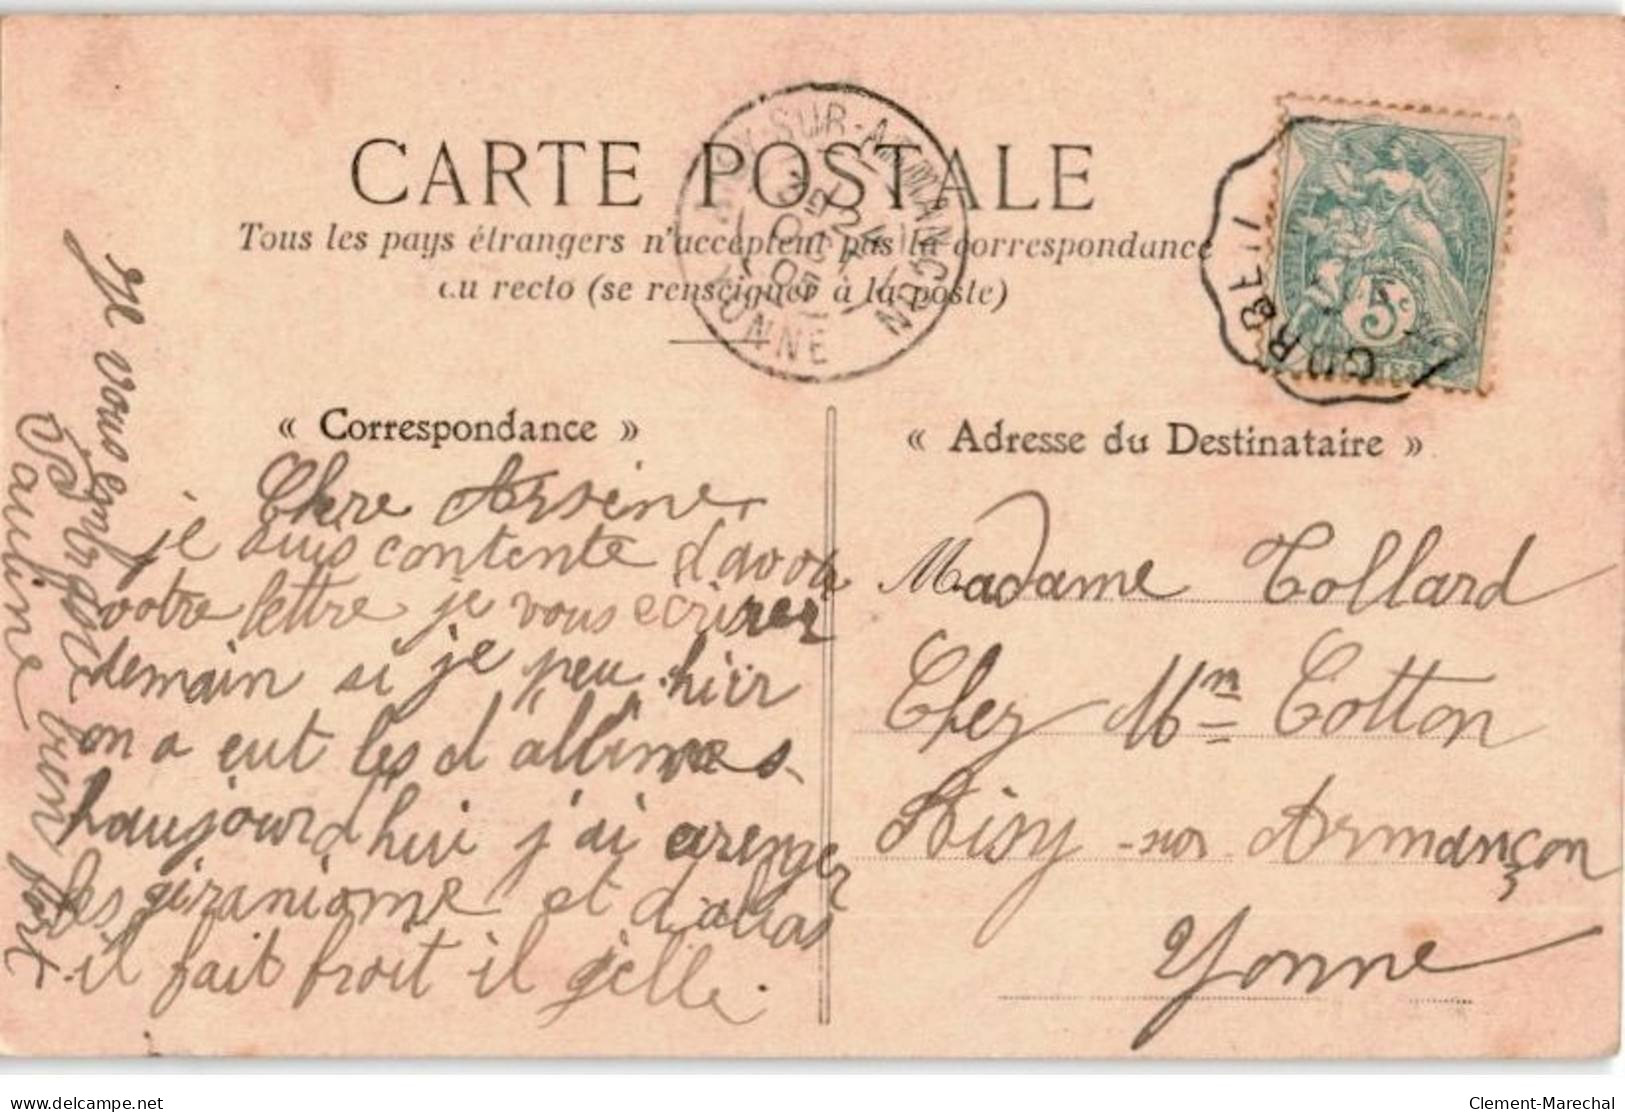 CARTE POSTALE
Tous les pays étrangers n'acceptent pas la correspondance
au recto (se renseigner à la poste)
SUR-ARMANCON
YONNE
CORBEIL
5c
« Correspondance »
Chere Arsène
je suis contente d'avoir
votre lettre je vous ecrirez
demain si je peu hièr
on a eut les d'allimes
haujourd hui j'ai arenger
les giraniome et dalias
il fait froit il gelle.
Je vous enbrasse bien fort
Pauline
« Adresse du Destinataire »
Madame Collard
Chez Mm Cotton
Aisy sur Armançon
Yonne
delcampe.net
Clement-Marechal